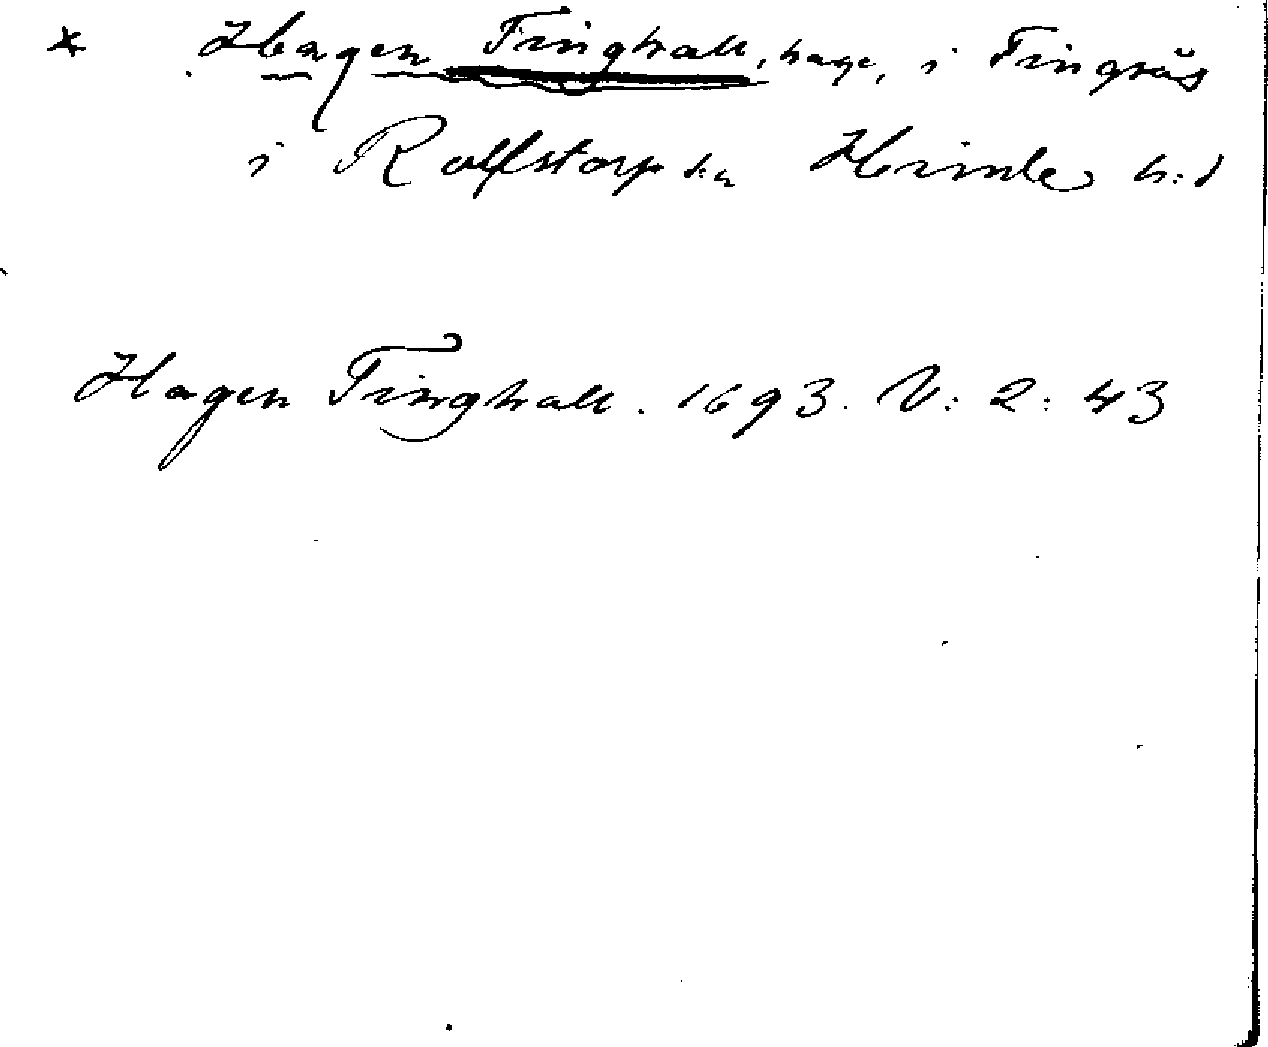 * Hagen Tinghall, hage, i Tingräs
i Rolfstorp sn Himle h:d
Hagen Tinghall. 1693. V: 2: 43